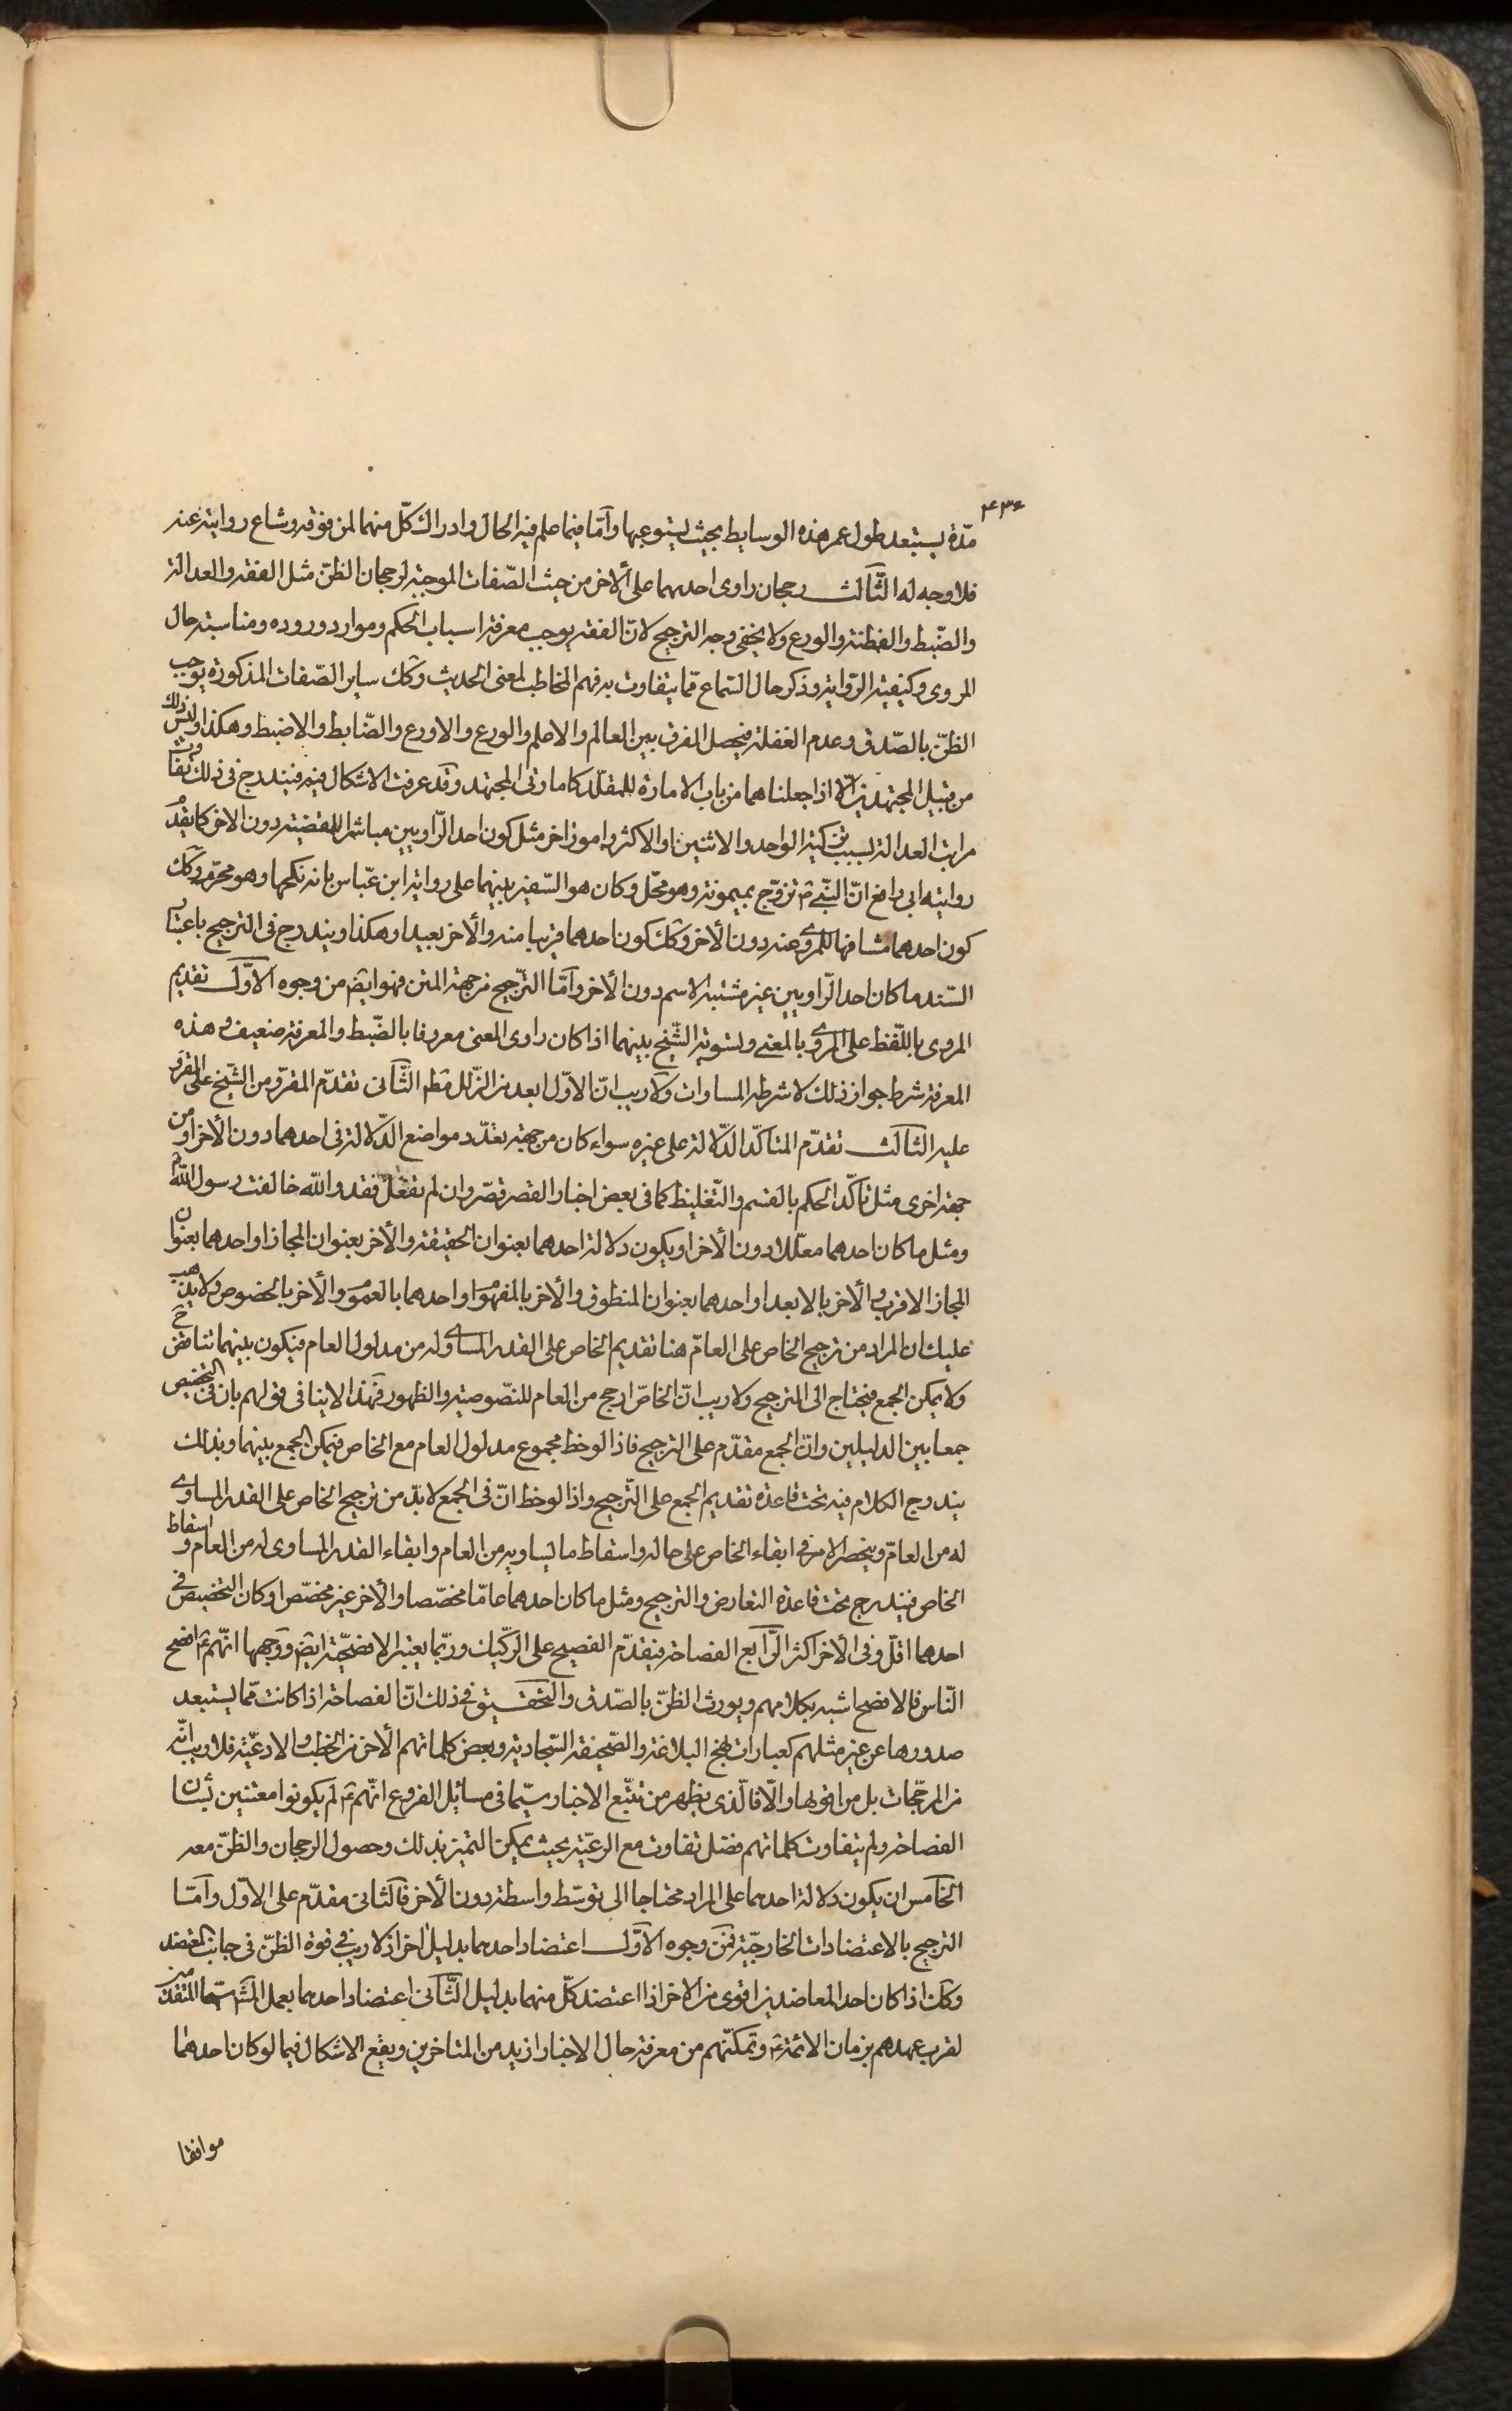 ۴۳۶
مدّة يستبعد طول عمر هذه الوسايط بحيث يستوعبها وامّا فيما علم فيه الحال وادراك كلّ منهما لمن فوقه وشاع روايته عنه
فلا وجه له الثّالث رجحان راوى احدهما على الاخر من حيث الصّفات الموجبة لرجحان الظنّ مثل الفقه والعدالة
والضّبط والفطنة والورع ولا يخفى وجه الترجيح لانّ الفقه يوجب معرفة اسباب الحكم وموارد وروده ومناسبة حال
المروى وكيفية الرّواية وذكر حال السّماع ممّا يتفاوت به فهم المخاطب لمعنى الحديث وكك ساير الصّفات المذكورة يوجب
الظنّ بالصّدق وعدم الغفلة فيحصل الفرق بين العالم والاعلم والورع والاورع والضّابط والاضبط وهكذا وليس ذلك
من قبيل المجتهدين الّا اذا جعلناهما من باب الامارة للمقلّد كامارتى المجتهد وقد عرفت الاشكال فيه فيندرج فى ذلك تفاوت
مراتب العدالة بسبب تزكية الواحد والاثنين او الاكثر وامور اخر مثل كون احد الرّاويين مباشرا للقضيّة دون الاخر كما يقدّم
رواية ابى رافع انّ النّبى ص تزوّج بميمونة وهو محلّ وكان هو السّفير بينهما على رواية ابن عبّاس بانه نكحها وهو محرم وكك
كون احدهما مشافها للمروى عنه دون الاخر وكك كون احدهما قريبا منه والاخر بعيدا وهكذا ويندرج فى الترجيح باعتبار
السّند ما كان احد الرّاويين غير مشتبه الاسم دون الاخر وامّا الترّجيح من جهة المتن فهو ايضا من وجوه الاوّل تقديم
المروى باللّفظ على المروى بالمعنى وتسوية الشّيخ بينهما اذا كان راوى المعنى معروفا بالضّبط والمعرفة ضعيف وهذه
المعرفة شرط جواز ذلك لا شرط المساوات ولا ريب انّ الاوّل ابعد من الزّلل قطعا الثّانى تقدّم المقرّو من الشّيخ على المقرو
عليه الثّالث تقدّم المتاكّد الدّلالة على غيره سواء كان من جهة تعدّد مواضع الدّلالة فى احدهما دون الاخر او من
جهة اخرى مثل تأكّد الحكم بالقسم والتّغليظ كما فى بعض اخبار القصر قصّر وان لم تفعل فقد واللّه خالفت رسول اللّه ص
ومثل ما كان احدهما معلّلا دون الاخر او يكون دلالة احدهما بعنوان الحقيقة والاخر بعنوان المجاز او احدهما بعنوان
المجاز الاقرب والاخر بالابعد او احدهما بعنوان المنطوق والاخر بالمفهوم او احدهما بالعموم والاخر بالخصوص ولا يذهب
عليك ان المراد من ترجيح الخاص على العامّ هنا تقديم الخاص على القدر المساوى له من مدلول العام فيكون بينهما تناقض ح
ولا يمكن الجمع فيحتاج الى الترجيح ولا ريب انّ الخاصّ ارجح من العام للنصّوصية والظهور فهذا لا ينافى قولهم بان فى التخصيص
جمعا بين الدليلين وانّ الجمع مقدّم على الترجيح فاذا لوحظ مجموع مدلول العام مع الخاص فيمكن الجمع بينهما وبذلك
يندرج الكلام فيه تحت قاعدة تقديم الجمع على الترّجيح واذا لوحظ انّ فى الجمع لا بدّ من ترجيح الخاص على القدر المساوى
له من العامّ وينحصر الامر فى ابقاء الخاص على حاله واسقاط ما يساويه من العام وابقاء القدر المساوى له من العام واسقاط
الخاص فيندرج تحت قاعدة التعارض والترجيح ومثل ما كان احدهما عامّا مخصّصا والاخر غير مخصّص او كان التخصيص فى
احدهما اقلّ وفى الاخر اكثر الرّابع الفصاحة فيقدّم الفصيح على الرّكيك وربّما يعتبر الافصحيّة ايضا ووجهها انّهم ع افصح
النّاس فالافصح اشبه بكلامهم ويورث الظنّ بالصّدق والتّحقيق فى ذلك انّ الفصاحة اذا كانت ممّا يستبعد
صدورها عن غير مثلهم كعبارات نهج البلاغة والصّحيفة السّجادية وبعض كلماتهم الاخر من الخطب والادعيّة فلا ريب انّه
من المرجّحات بل من اقوها والّا فالّذى يظهر من تتبّع الاخبار سيّما فى مسائل الفروع انّهم ع لم يكونوا معتنين بشأن
الفصاحة ولم يتفاوت كلماتهم فضل تفاوت مع الرعيّة بحيث يمكن التميز بذلك وحصول الرجحان والظنّ معه
الخامس ان يكون دلالة احدهما على المراد محتاجا الى توسّط واسطة دون الاخر فالثانى مقدّم على الاوّل وامّا
الترجيح بالاعتضادات الخارجيّة فمن وجوه الاوّل اعتضاد احدهما بدليل اخر اذ لا ريب فى قوة الظنّ فى جانب المعتضد
وكك اذا كان احد المعاضدين اقوى من الاخر اذا اعتضد كلّ منهما بدليل الثّانى اعتضاد احدهما بعمل المش سيّما المتقدّمين
لقرب عهدهم بزمان الائمّة ع وتمكّنهم من معرفة حال الاخبار ازيد من المتاخرين ويقع الاشكال فيما لو كان احدهما
موافقا